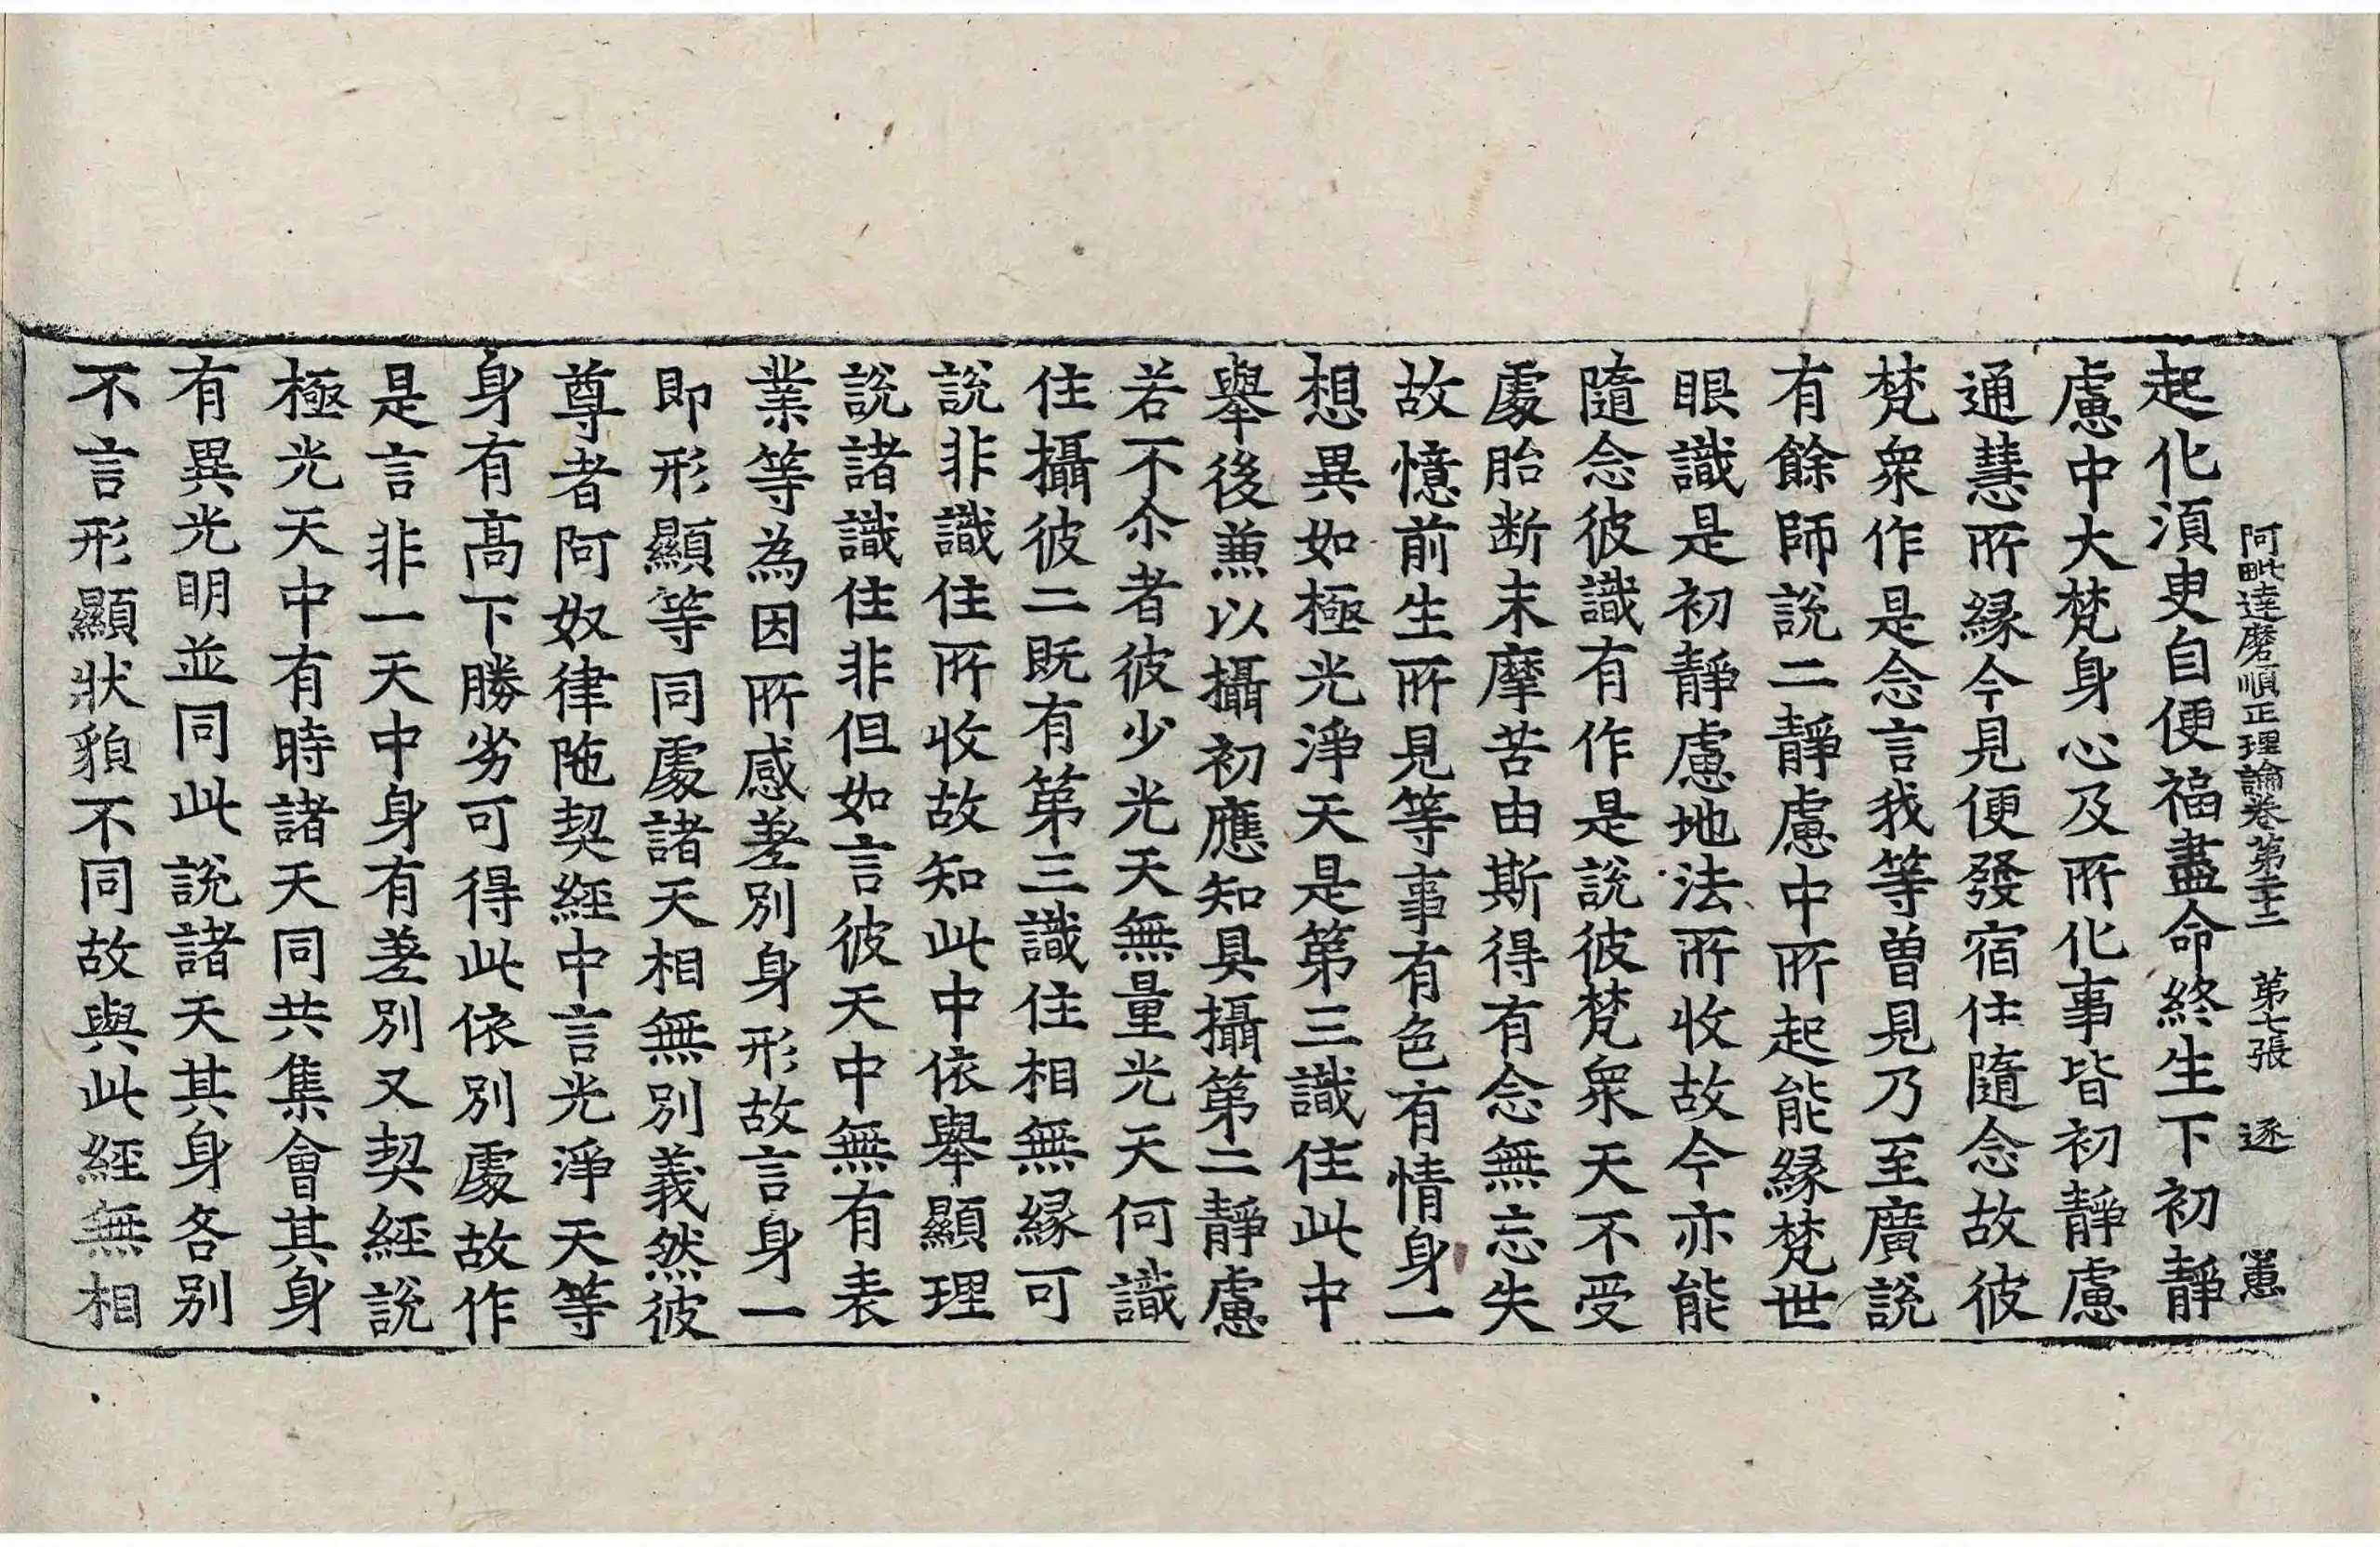 阿毗達磨順正理論卷第二十二 第七張 逐
起化湏㬰自便福盡命終生下初靜
慮中大梵身心及所化事皆初靜慮
通慧所緣今見便發宿住隨念故彼
梵衆作是念言我等曾見乃至廣說
有餘師說二靜慮中所起能緣梵世
眼識是初靜慮地法所收故今亦能
隨念彼識有作是說彼梵衆天不受
處胎断末摩苦由斯得有念無忘失
故憶前生所見等事有色有情身一
想異如極光淨天是第三識住此中
舉後兼以攝初應知具攝第二靜慮
若不尒者彼少光天無量光天何識
住攝彼二既有第三識住相無緣可
說非識住所收故知此中依舉顯理
說諸識住非但如言彼天中無有表
業等為因所感差別身形故言身一
即形顯等同處諸天相無別義然彼
尊者阿奴律陁契經中言光淨天等
身有高下勝劣可得此依別處故作
是言非一天中身有差別又契經說
極光天中有時諸天同共集會其身
有異光明並同此說諸天其身各別
不言形顯狀貌不同故與此經無相